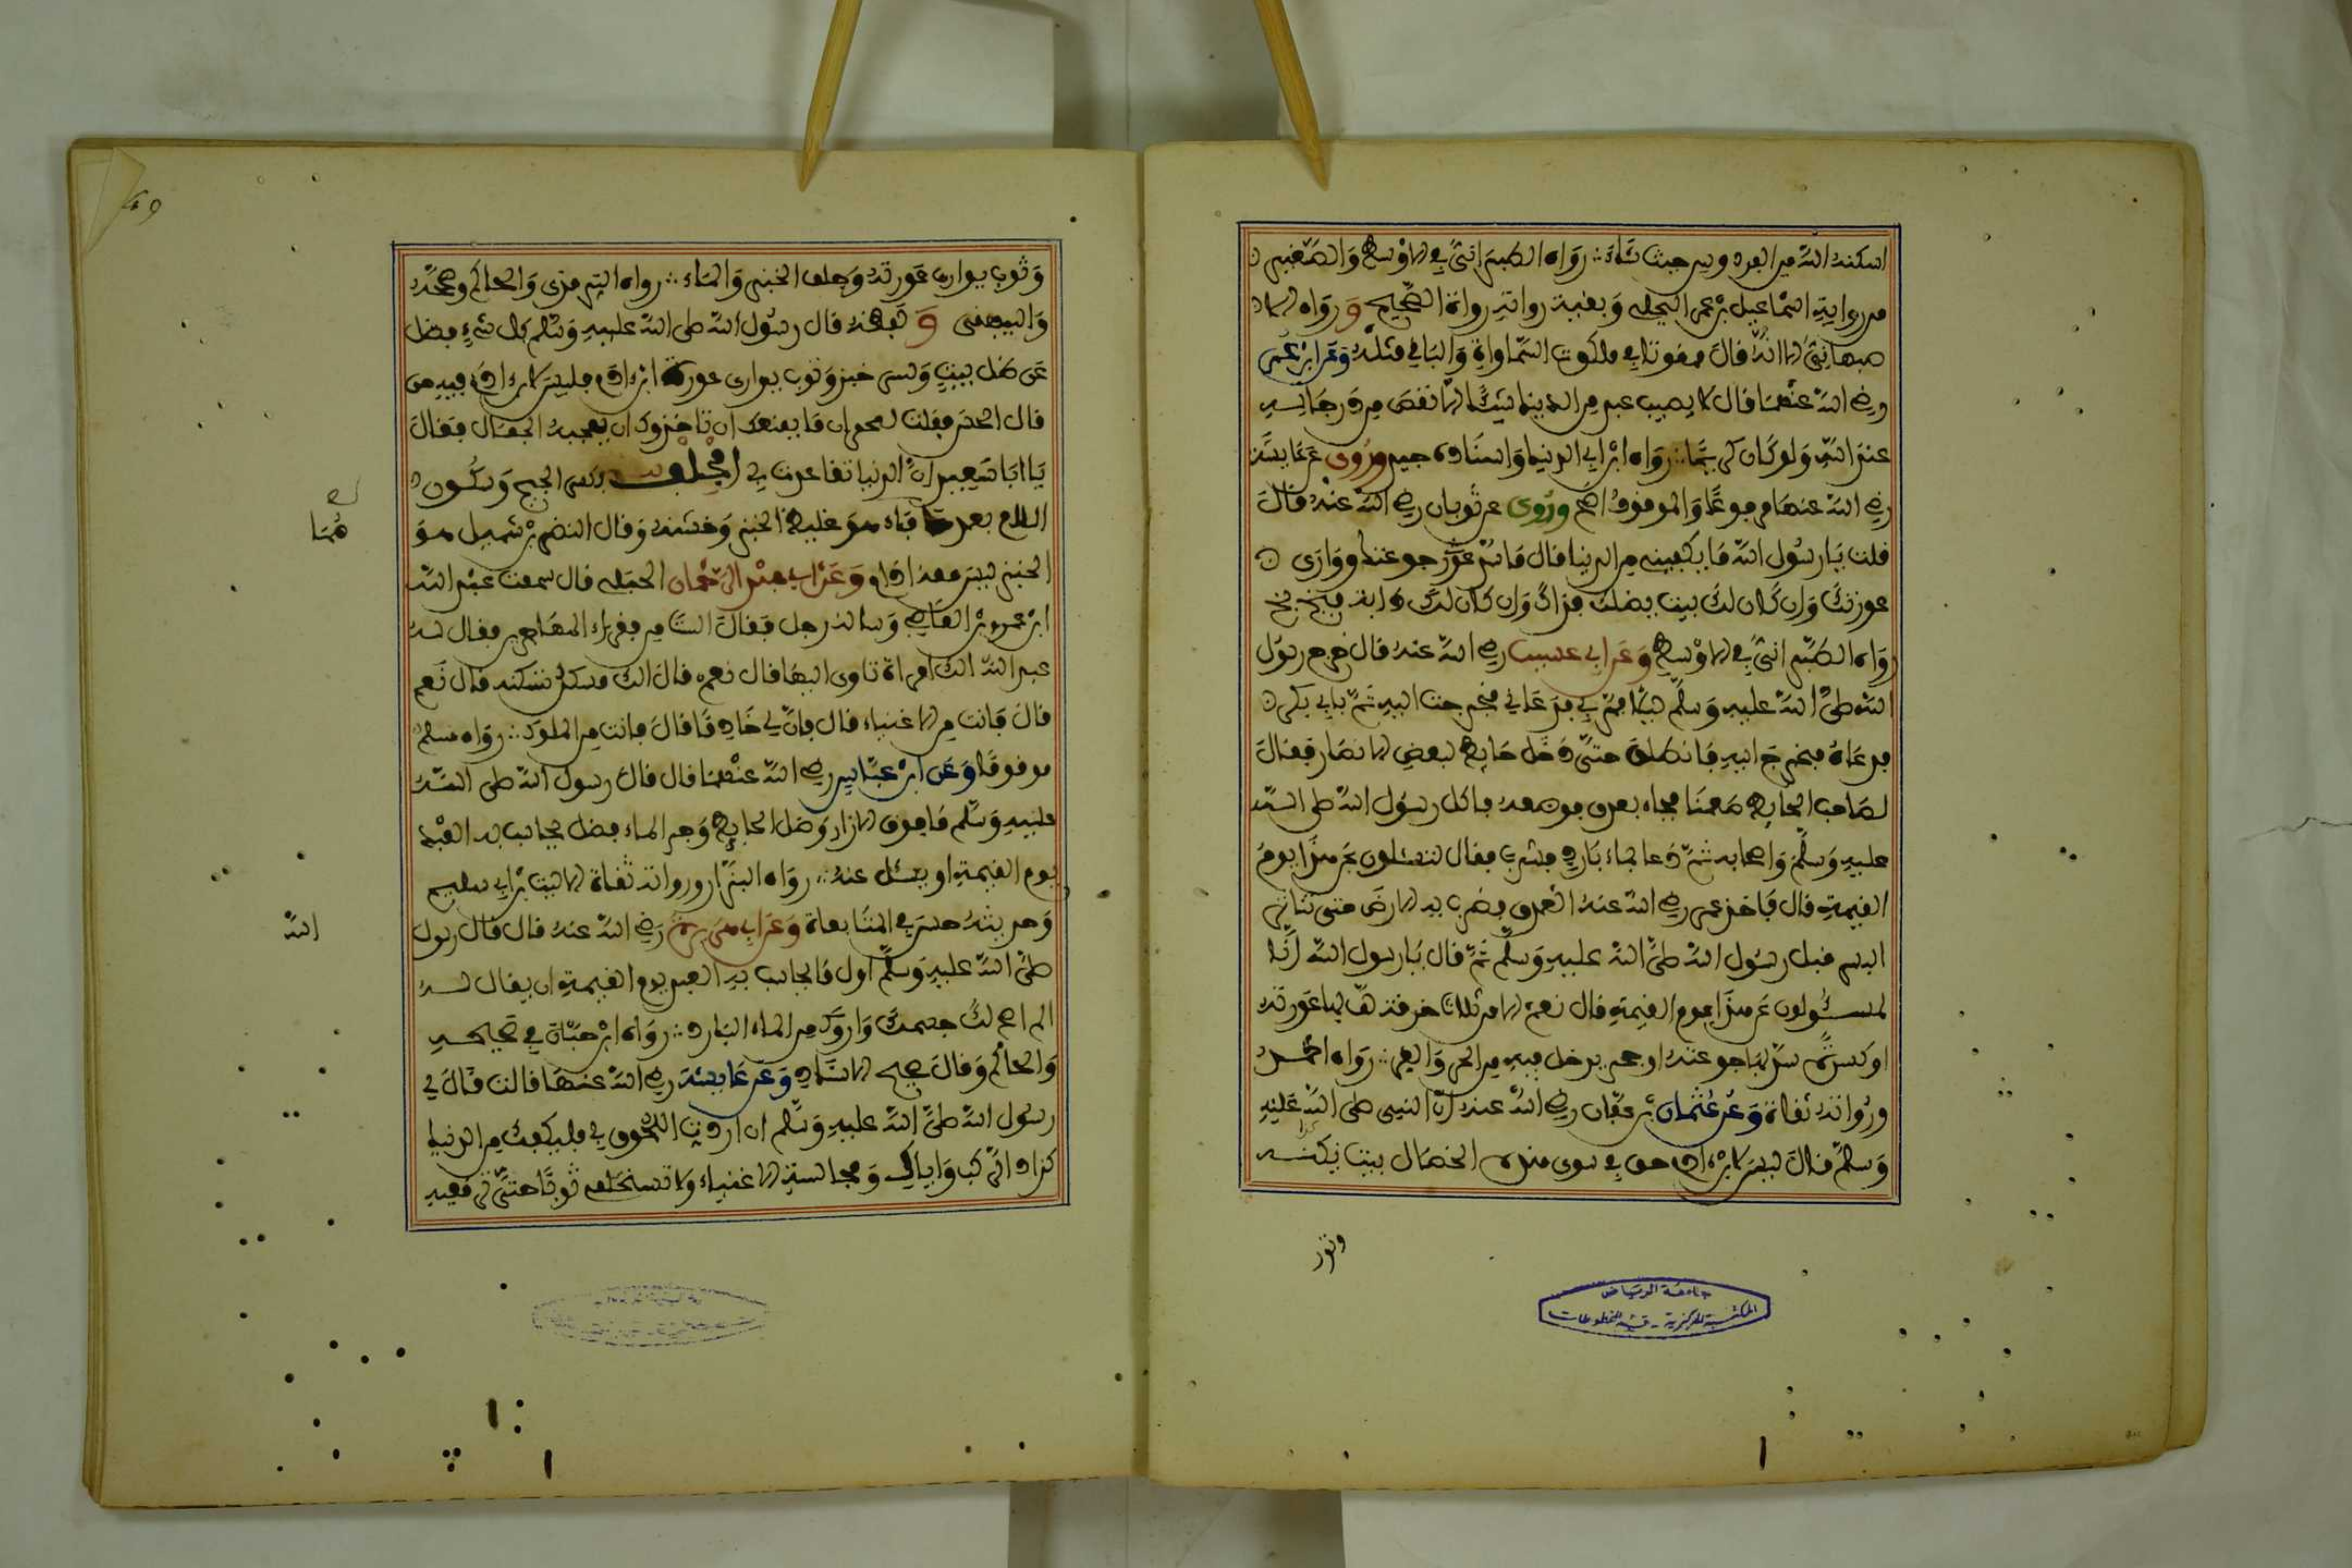 اسكنه الله من الفردوس حيث شاء رواه الطبراني في الاوسط والصغير
من رواية اسماعيل بن عمر البجلي وبقية رواته رواة الصحيح ورواه الا
صبهاني الا انه قال ممقوتا في ملكوت السماوات والباقي مثله وعن ابن عمر
رضي الله عنهما قال لا يصيب عبد من الدنيا شيئا الا نقص من درجاته
عند الله ولو كان كريما رواه ابن ابي الدنيا واسناده جيد وروي عن عايشة
رضي الله عنها مرفوعا والموقوف اصح وروي عن ثوبان رضي الله عنه قال
قلت يا رسول الله ما يكفيني من الدنيا قال ما سد جوعتك ووارى
عورتك وان كان لك بيت يظلك فذاك وان كان لك دابة فبخ بخ
رواه الطبراني في الاوسط وعن ابي عسيب رضي الله عنه قال خرج رسول
الله صلى الله عليه وسلم ليلا فمر بي فدعاني فخرجت اليه ثم بابي بكر
فدعاه فخرج اليه فانطلق حتى دخل حايطا لبعض الانصار فقال
لصاحب الحايط اطعمنا فجاء بعذق فوضعه فاكل رسول الله صلى الله
عليه وسلم واصحابه ثم دعا بماء بارد فشرب فقال لتسئلون عن هذا يوم
القيمة قال فاخذ عمر رضي الله عنه العذق فضرب به الارض حتى تناثر
البسر قبل رسول الله صلى الله عليه وسلم ثم قال يا رسول الله انا
لمسؤولون عن هذا يوم القيمة قال نعم الا من ثلاث خرقة لف بها عورته
او كسرة سد بها جوعته او جحر يدخل فيه من الحر والقر رواه احمد
ورواته ثقاة وعن عثمان بن عفان رضي الله عنه ان النبي صلى الله عليه
وسلم قال ليس لابن ادم حق في سوى هذه الخصال بيت يكنه
وثوب
جامعة الرياض
المكتبة المركزية - قسم المخطوطات
وثوب يوارى عورته وجلف الخبز والماء رواه الترمذي والحاكم وصححه
والبيهقي و لفظه قال رسول الله صلى الله عليه وسلم كل شيء فضل
عن ظل بيت وكسر خبز وثوب يوارى عورة ابن ادم فليس لابن ادم فيه حق
قال الحسن فقلت لحمران ما يمنعك ان تاخذ وكان يعجبه الجمال فقال
يا ابا سعيد ان الدنيا تقاعدت بي الجلف بكسر الجيم وسكون
اللام بعدهما فاء هو غليظ الخبز وخشنه وقال النضر بن شميل هو
الخبز ليس معه ادام وعن ابي عبد الرحمان الحبلي قال سمعت عبد الله
ابن عمرو بن العاصي وساله رجل فقال السنا من فقراء المهاجرين فقال له
عبد الله الك امراة تاوى اليها قال نعم قال الك مسكن تسكنه قال نعم
قال فانت من الاغنياء قال فان لي خادما قال فانت من الملوك رواه مسلم
موقوفا وعن ابن عباس رضي الله عنهما قال قال رسول الله صلى الله
عليه وسلم ما فوق الازار وظل الحايط وجر الماء فضل يحاسب به العبد
يوم القيمة او يسئل عنه رواه البزار ورواته ثقاة الا ليث بن ابي سليم
وحديثه حسن في المتابعاة وعن ابي هريرة رضي الله عنه قال قال رسول
الله
صلى الله عليه وسلم اول ما يحاسب به العبد يوم القيمة ان يقال له
الم اصح لك جسمك واروك من الماء البارد رواه ابن حبان في صحيحه
والحاكم وقال صحيح الاسناد وعن عايشة رضي الله عنها قالت قال لي
رسول الله صلى الله عليه وسلم ان اردت اللحوق بي فليكفك من الدنيا
كزاد الراكب واياك ومجالسة الاغنياء ولا تستخلفي ثوبا حتى ترقعيه